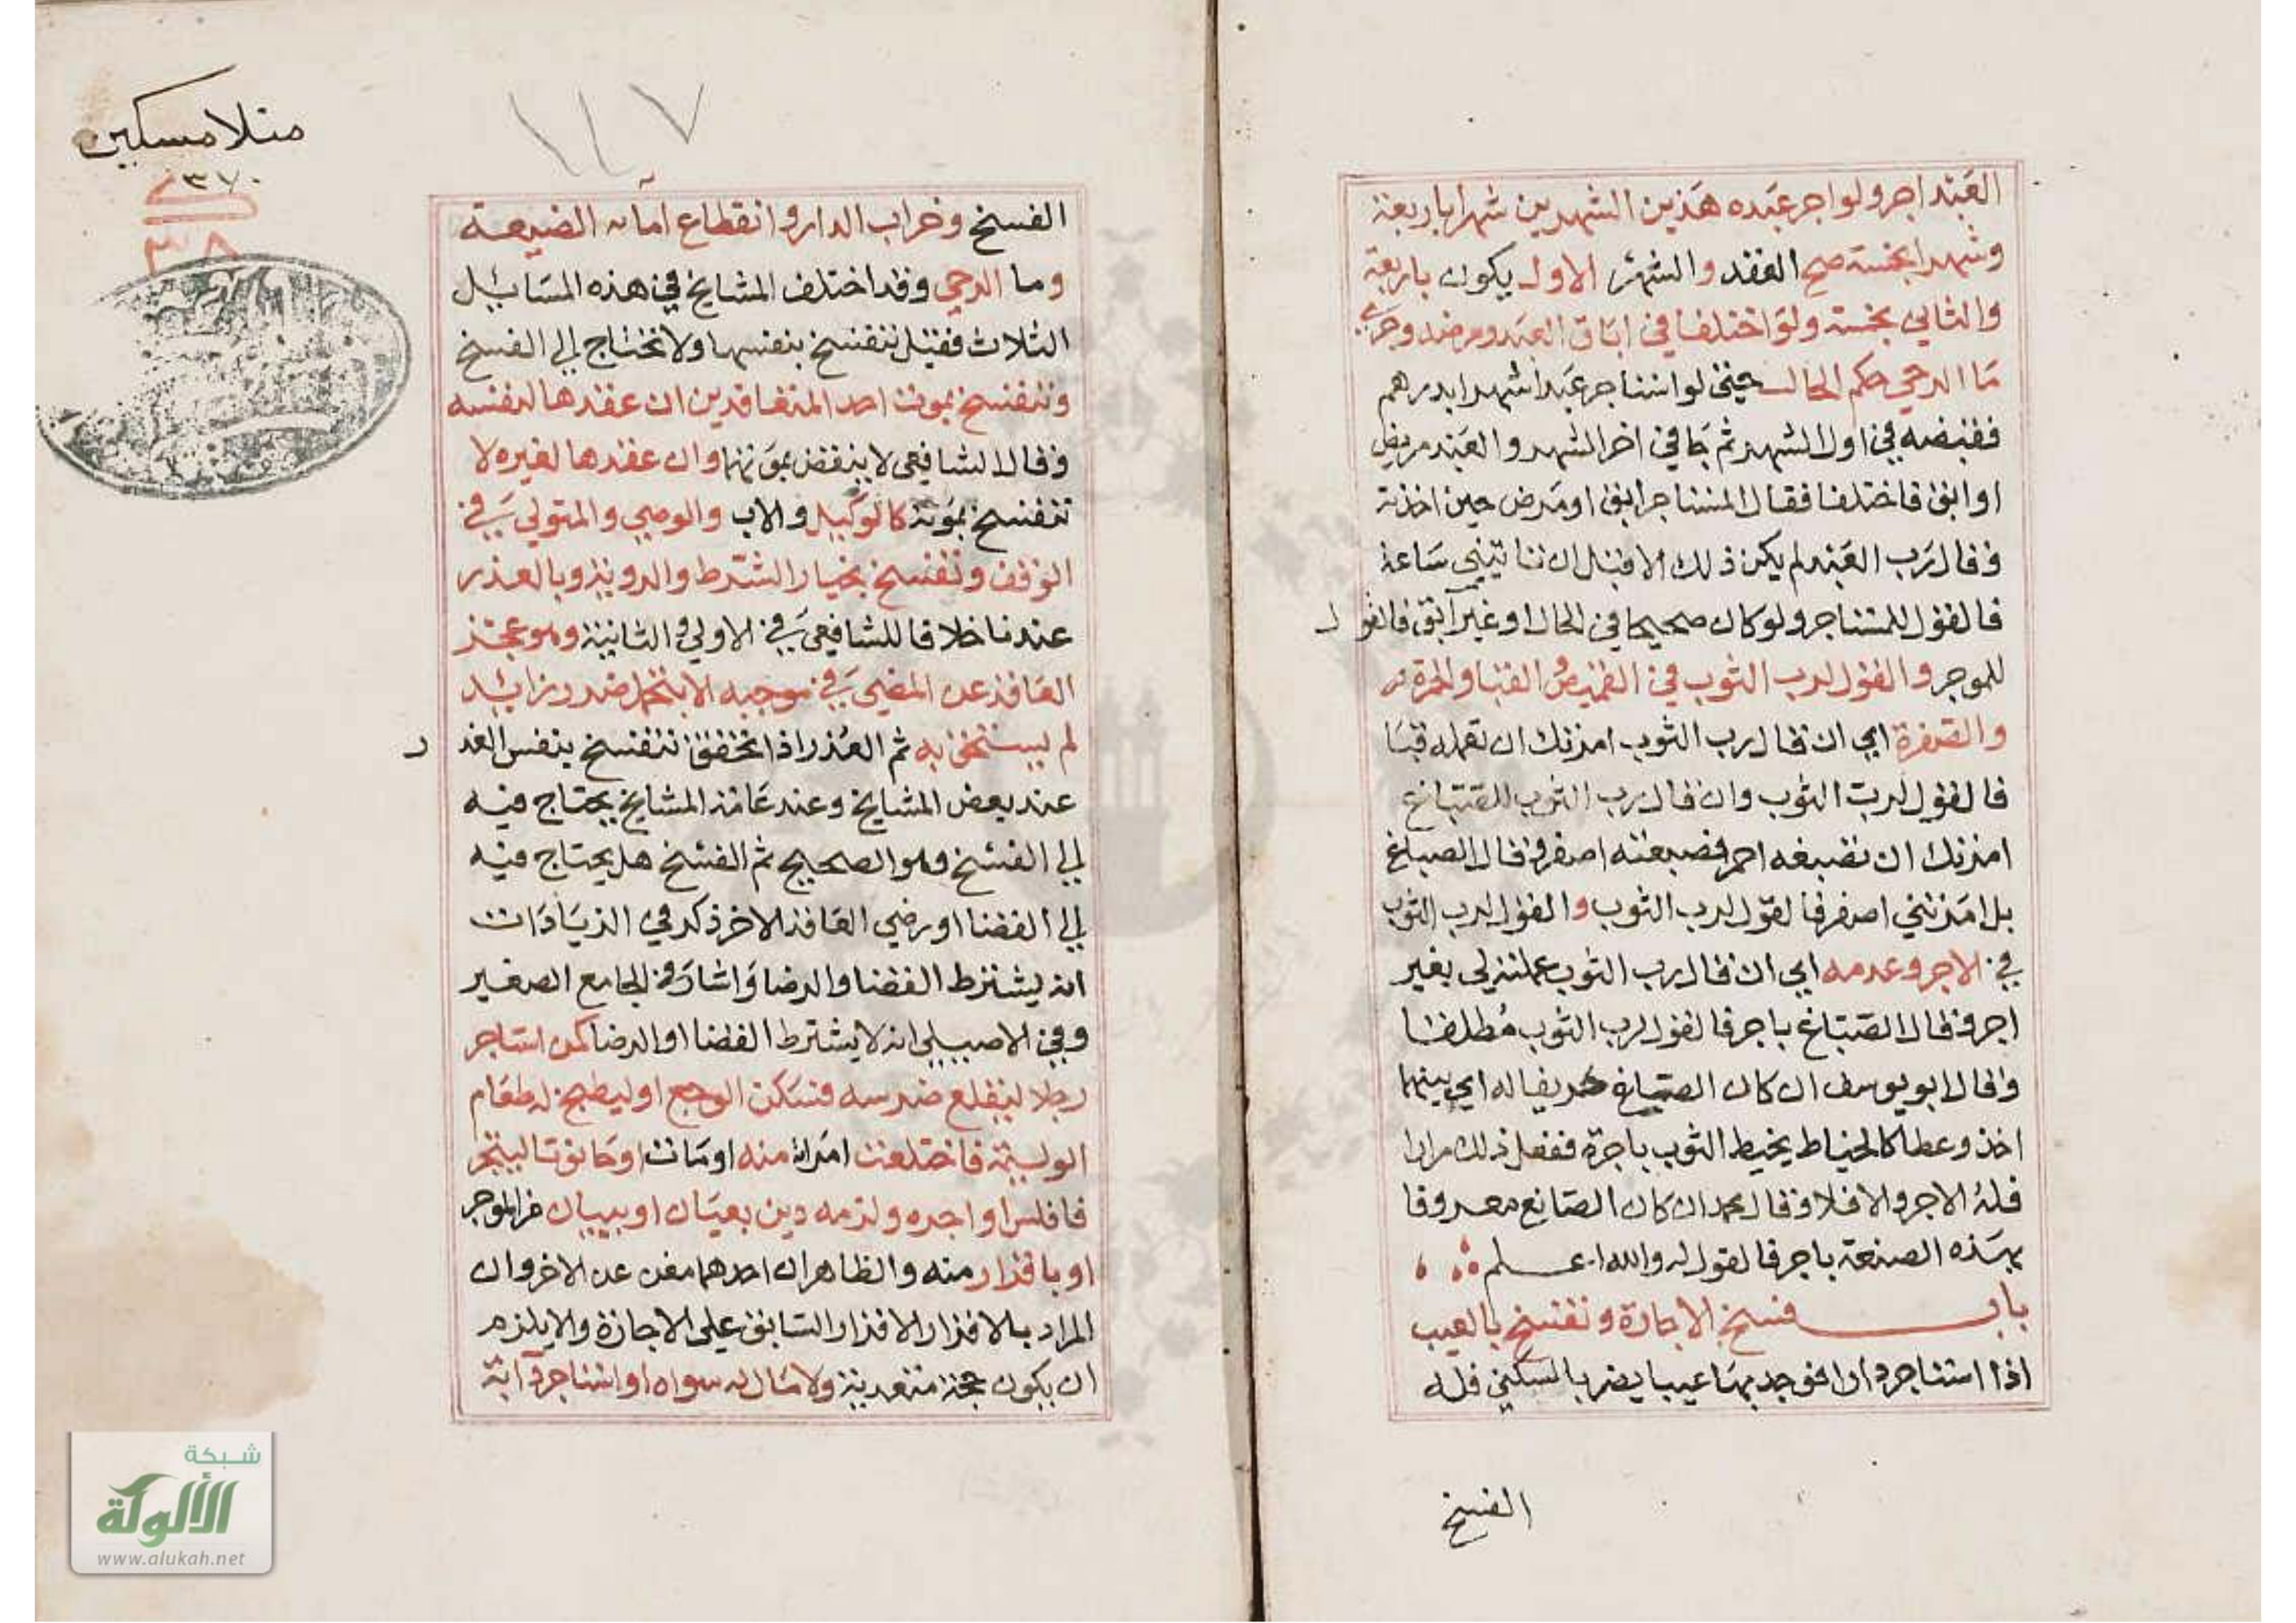 العبد اجر ولو اجر عبده هذين الشهرين شهرا باربعة
وشهرا بخمسة صح العقد والشهر الاول يكون باربعة
والثاني بخمسة ولو اختلفا في اباق العبد ومرضه وجري
ما الرحي حكم الحال حيتي لو استاجر عبدا شهرا بدرهم
فقبضه في اول الشهر ثم جا في اخر الشهر والعبد مريض
او ابق فاختلفا فقال المستاجر ابق او مرض حين اخذته
وقال رب العبد لم يكن ذلك الا قبل ان تاتيني ساعة
فالقول للمستاجر ولو كان صحيحا في الحال او غير آبق فالقول
للموجر والقول لرب الثوب في القميص والقبا والحمرة
والصفرة اي ان قال رب الثوب امرتك ان تعمله قبا
فالقول لرب الثوب وان قال رب الثوب للصباغ
امرتك ان تصبغه احمر فصبغته اصفر وقال الصباغ
بل امرتني اصفر فالقول لرب الثوب والقول لرب الثوب
في الاجر وعدمه اي ان قال رب الثوب عملته لي بغير
اجر وقال الصباغ باجر فالقول لرب الثوب مطلقا
وقال ابو يوسف ان كان الصباغ حريفا له اي بينهما
اخذ وعطا كالخياط يخيط الثوب باجرة ففعل ذلك مرارا
فله الاجر والا فلا وقال محمد ان كان الصانع معروفا
بهذه الصنعة باجر فالقول له والله اعلم
باب فسخ الاجارة وتفسخ بالعيب
اذا استاجر دارا فوجد بها عيبا يضر بالسكني فله
الفسخ
١١٧
منلا مسكين
٣٧٠
٣٨
الفسخ وخراب الدار وانقطاع ماء الضيعة
وما الرحي وقد اختلف المشايخ في هذه المسايل
الثلاث فقيل تنفسخ بنفسها ولا تحتاج الى الفسخ
وتنفسخ بموت احد المتعاقدين ان عقدها لنفسه
وقال الشافعي لا ينقض بموتهما وان عقدها لغيره لا
تنفسخ بموته كالوكيل والاب والوصي والمتولي في
الوقف وتفسخ بخيار الشرط والرويتة وبالعذر
عندنا خلافا للشافعي في الاولي والثانية وهو عجز
العاقد عن المضي في موجبه الا بتحمل ضرر زايد
لم يستحق به ثم العذر اذا تحقق تنفسخ بنفس العذر
عند بعض المشايخ وعند عامة المشايخ يحتاج فيه
الى الفسخ وهو الصحيح ثم الفسخ هل يحتاج فيه
الى القضا او رضي العاقد الاخر ذكر في الزيادات
انه يشترط القضا والرضا واشار في الجامع الصغير
وفي الاصل الى انه لا يشترط القضا او الرضا كمن استاجر
رجلا ليقلع ضرسه فسكن الوجع او ليطبخ له طعام
الوليمة فاختلعت امراة منه او ماتت او حانوتا ليتجر
فافلس او اجره ولزمه دين بعيان او ببيان من الموجر
او باقرار منه والظاهر ان احدهما مغن عن الاخر وان
المراد بالاقرار الاقرار السابق على الاجازة والا يلزم
ان يكون حجة متعدية ولا مال له سواه او استاجر دآبة
شبكة
الألوكة
www.alukah.net